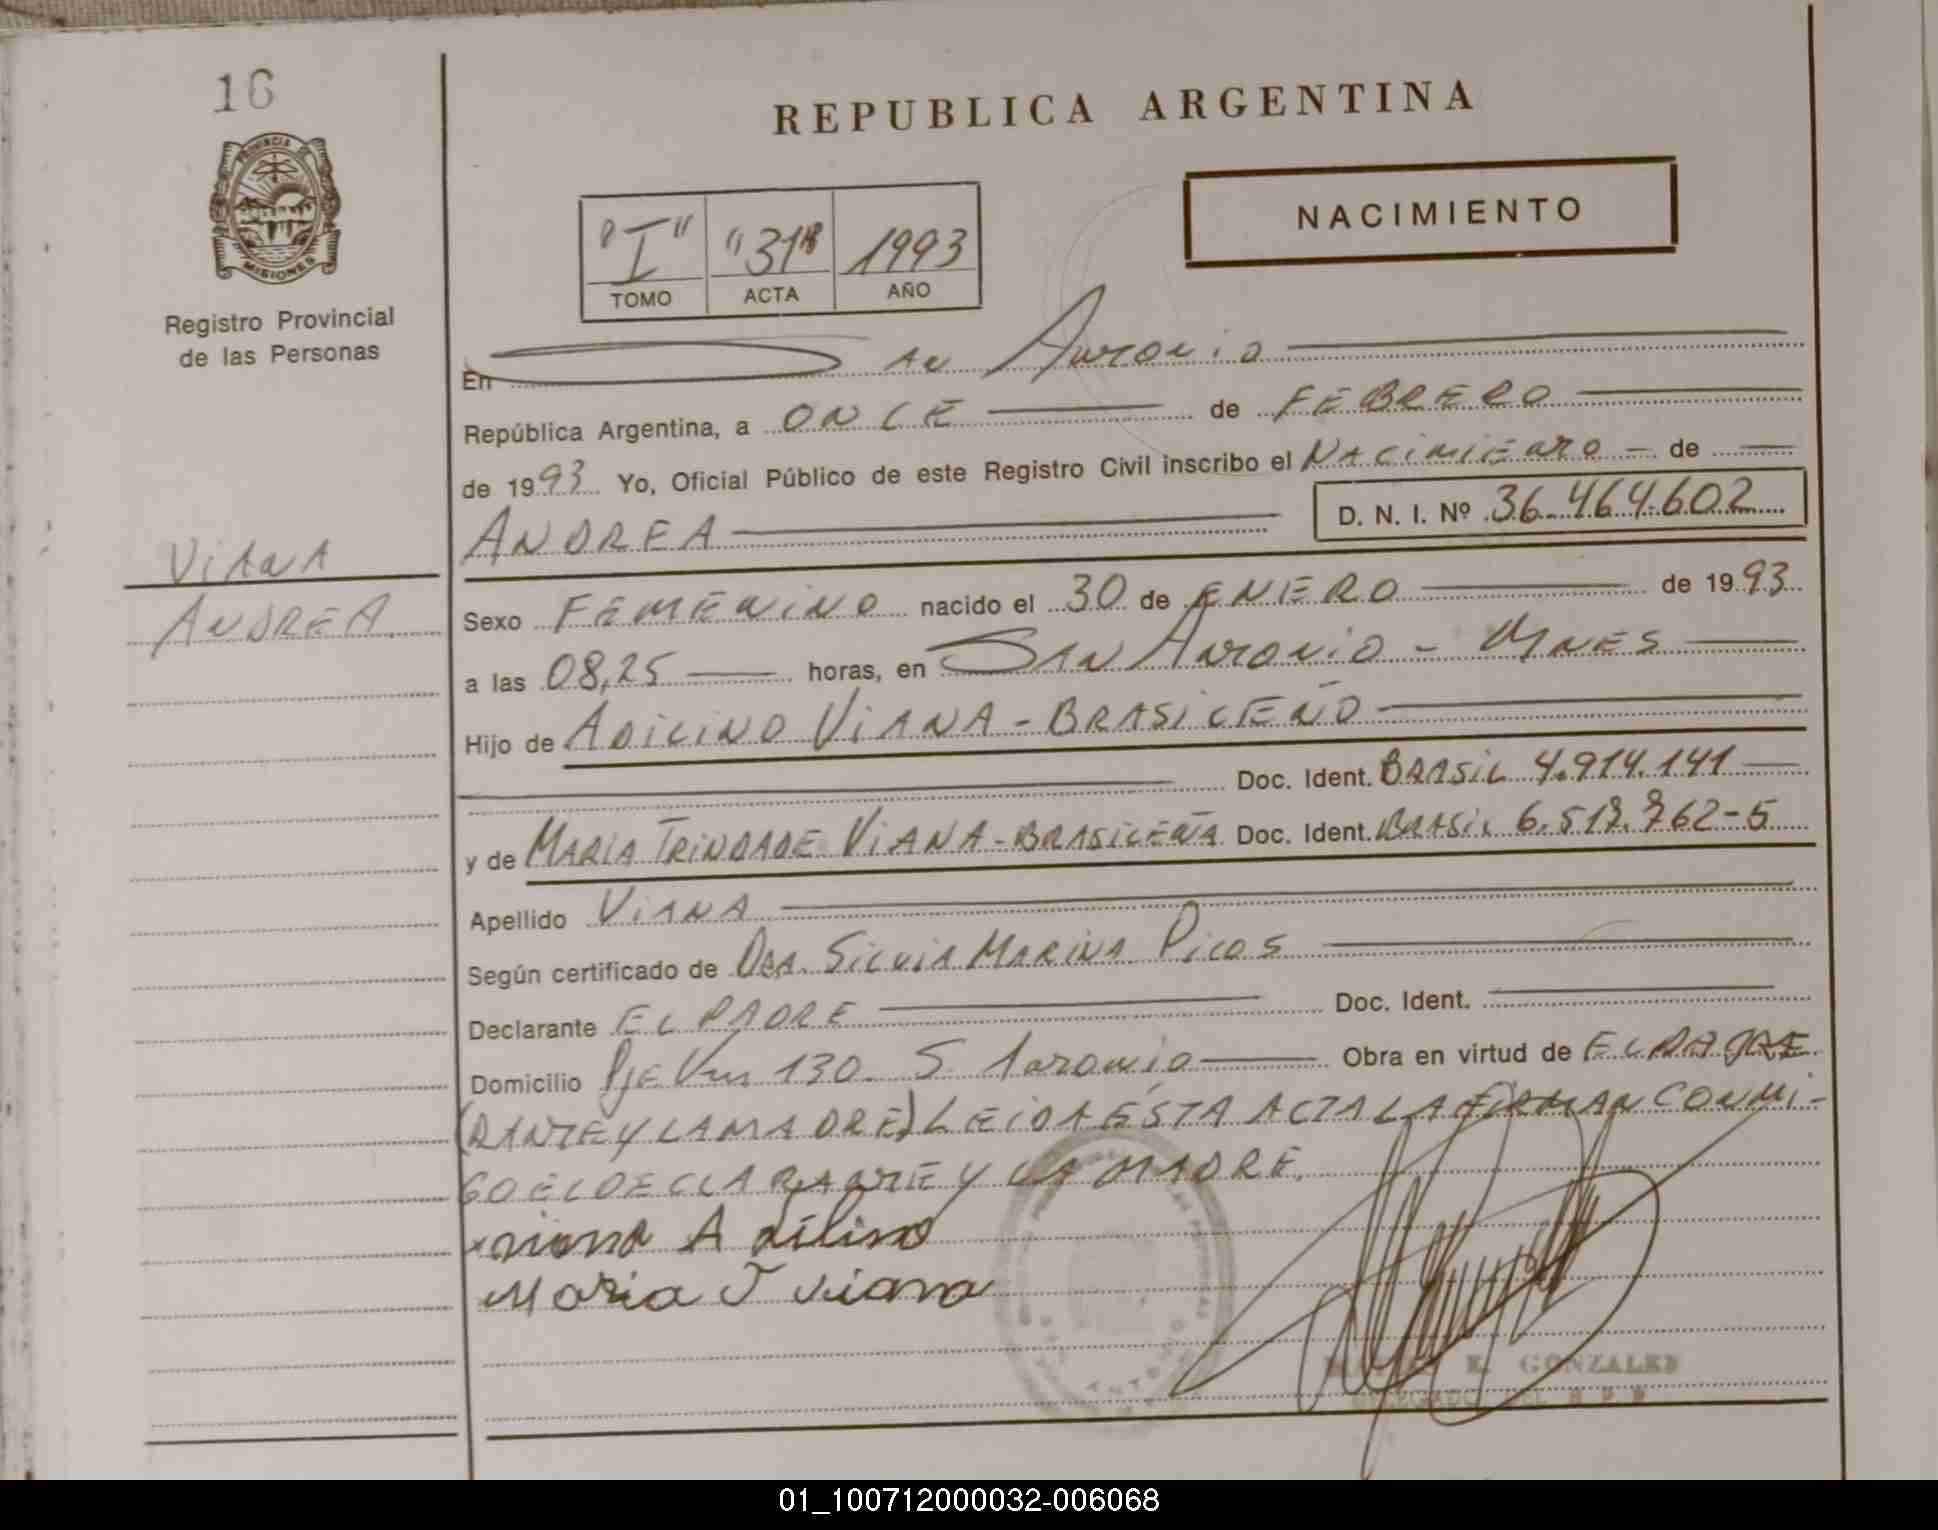 16
REPUBLICA ARGENTINA
PROVINCIA DE
MISIONES
Registro Provincial
de las Personas
"I" "31" 1993
TOMO ACTA AÑO
NACIMIENTO
En San Antonio
República Argentina, a ONCE de FEBRERO
de 1993 Yo, Oficial Público de este Registro Civil inscribo el NACIMIENTO - de
ANDREA
D. N. I. Nº 36.464.602
VIANA
ANDREA
Sexo FEMENINO nacido el 30 de ENERO de 1993
a las 08,25 horas, en SAN ANTONIO - MNES
Hijo de ADILINO VIANA - BRASILEÑO
Doc. Ident. BRASIL 4.914.141
y de MARIA TRINDADE VIANA - BRASILEÑA Doc. Ident. BRASIL 6.517.762-5
Apellido VIANA
Según certificado de DRA. SILVIA MARINA PICOS
Declarante EL PADRE Doc. Ident.
Domicilio Pje Km 130. S. Antonio Obra en virtud de
(RANTE Y LA MADRE) LEIDA ÉSTA ACTA LA FIRMAN CONMI-
GO EL DECLARANTE Y LA MADRE.
x viana Adilino
Maria T viana
E. GONZALEZ
DELEGADO DEL R P P
01_100712000032-006068